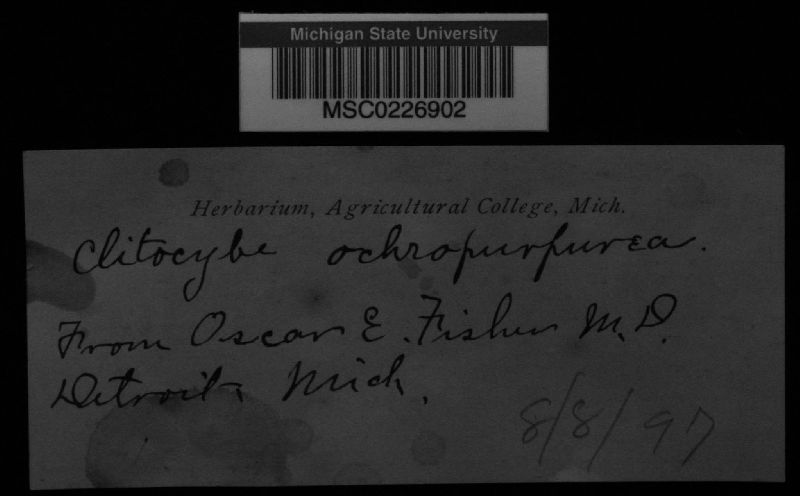 Michigan State University
MSC0226902
Herbarium, Agricultural College, Mich.
Clitocybe ochropurpurea.
From Oscar E. Fisher M.D.
Detroit, Mich.
8/8/97